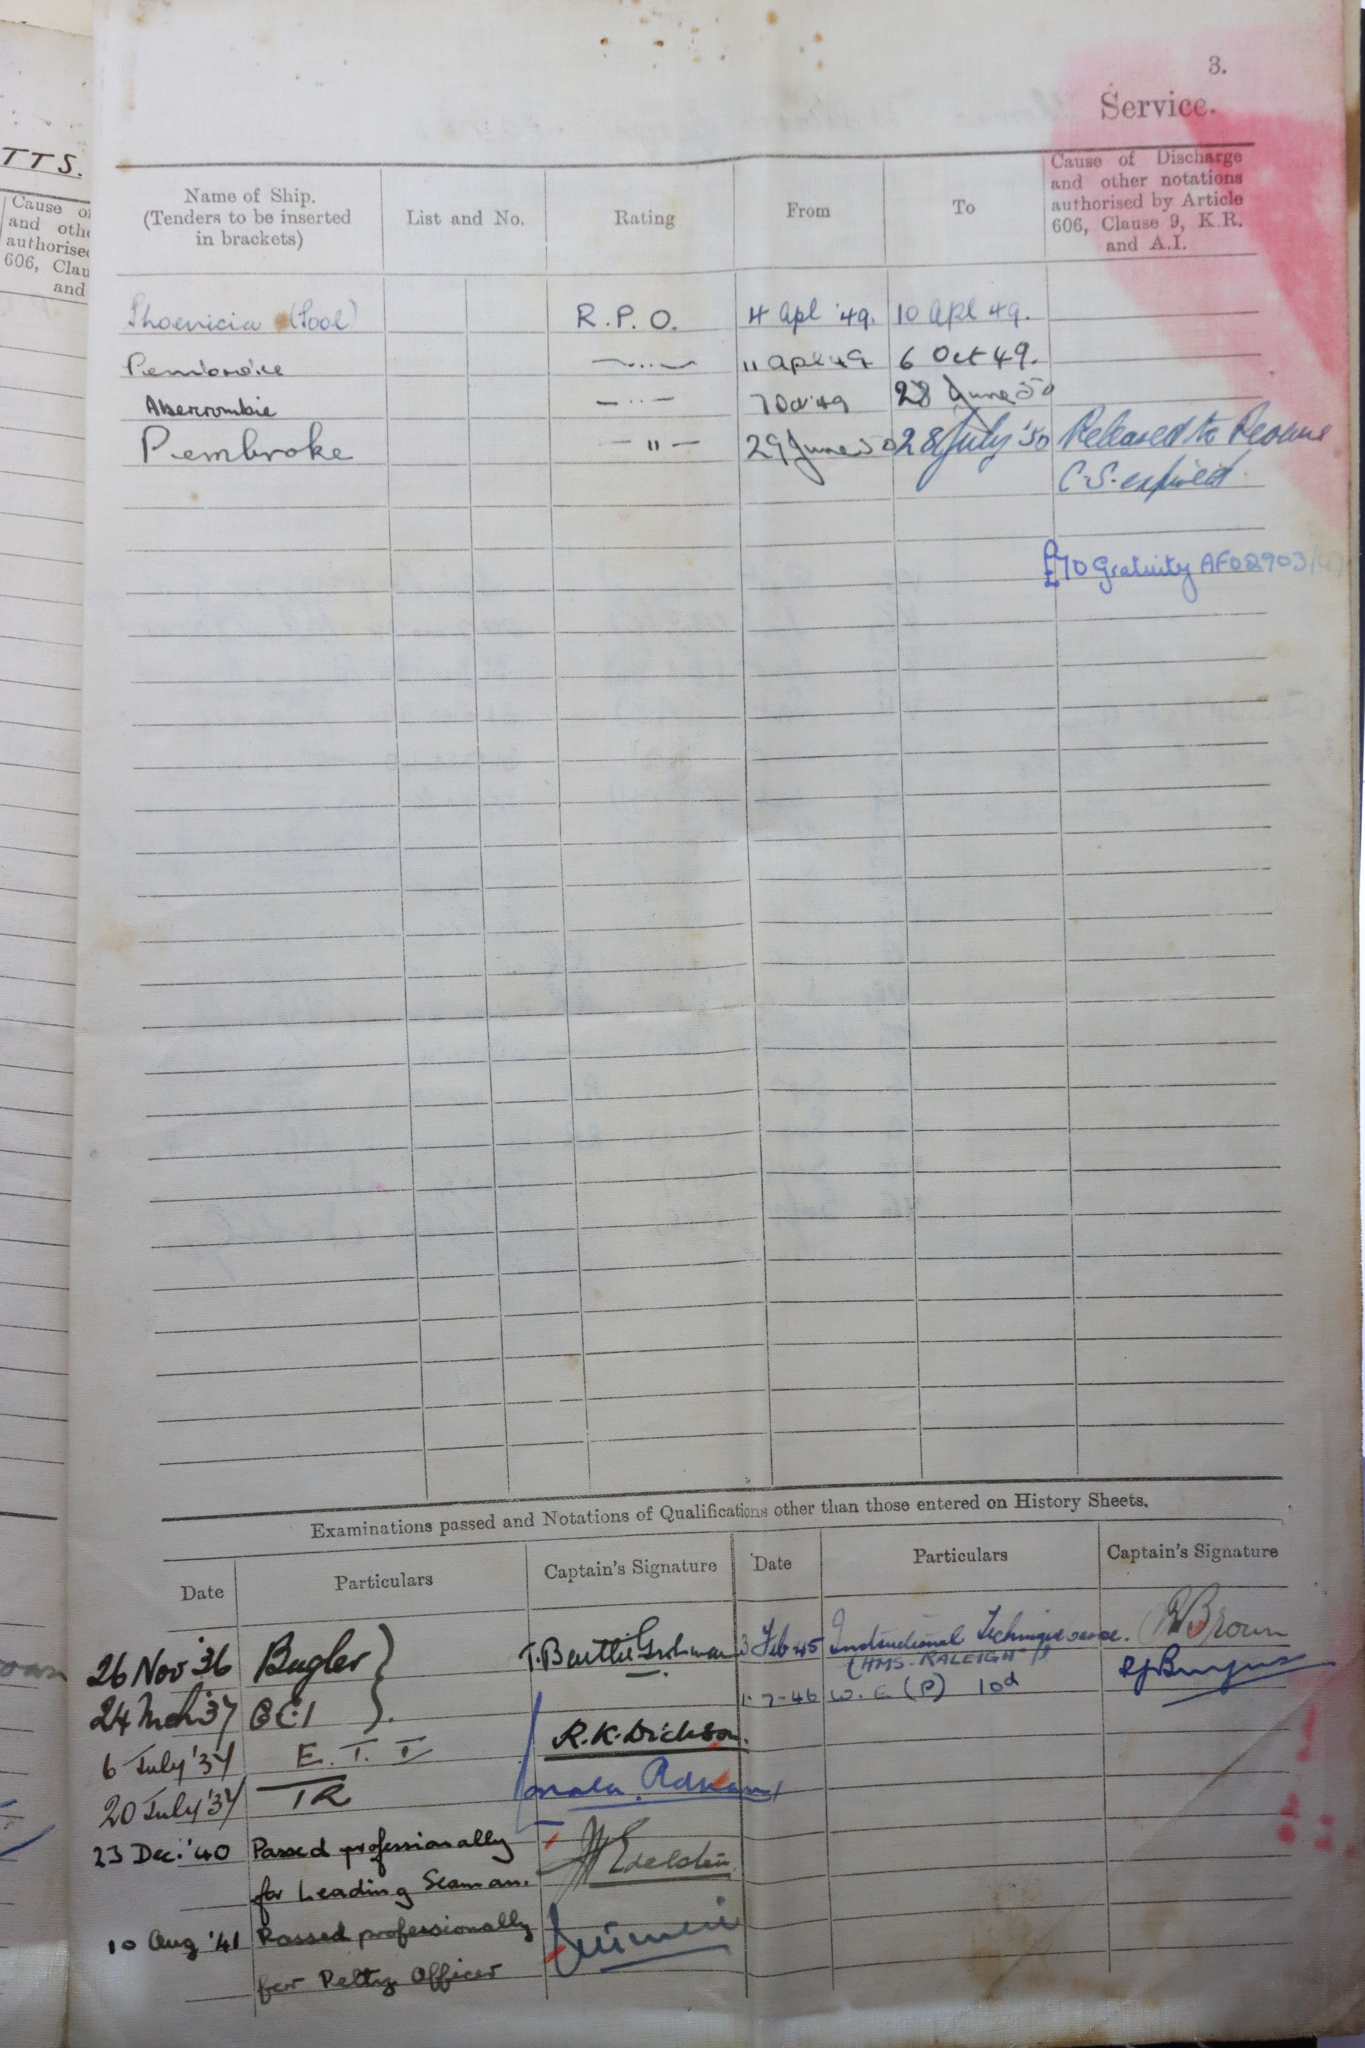 3.
Service.
TTS.
Cause of
and othe
authorise
606, Clau
and
Name of Ship.
(Tenders to be inserted
in brackets)
List and No.
Rating
From
To
Cause of Discharge
and other notations
authorised by Article
606, Clause 9, K.R.
and A.I.
Phoenicia (Pool) R.P.O. 4 Apl '49. 10 Apl 49.
Pembroke —..— 11 Apl 49 6 Oct 49.
Abercrombie —..— 7 Oct 49 28 June 50
Pembroke — " — 29 June 50 28 July '50 Released to
C.S. expired.
£70 Gratuity AFO 2903/
Examinations passed and Notations of Qualifications other than those entered on History Sheets.
Date Particulars Captain's Signature Date Particulars Captain's Signature
26 Nov '36 Bugler 3 Feb 45 Instructional Technique Brown
(HMS. RALEIGH)
24 Mch '37 1-7-46 W.E (P) 10d
6 July '37 E.T.T R.K. Dickson.
20 July '37 TR
23 Dec. '40 Passed professionally Edelsten
for Leading Seaman.
10 Aug '41 Passed professionally
for Petty Officer